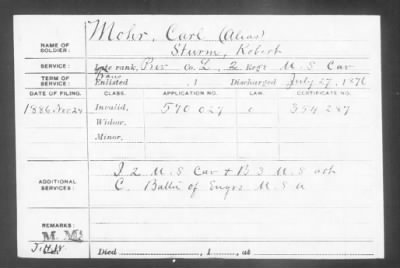 Mohr, Carl (Alias)
NAME OF SOLDIER: Sturm, Robert
SERVICE: Late rank, Priv Co. L, 2 Reg't U.S. Cav
TERM OF SERVICE: Enlisted , 1 Discharged July 27, 1876
DATE OF FILING. CLASS. APPLICATION NO. LAW. CERTIFICATE NO.
1886 Nov 24 Invalid, 590 027 354 287
Widow,
Minor,
ADDITIONAL SERVICES: I 2 U.S Cav & B 3 U.S
C. Batt'n of Engrs U.S a
REMARKS:
Died , 1 , at